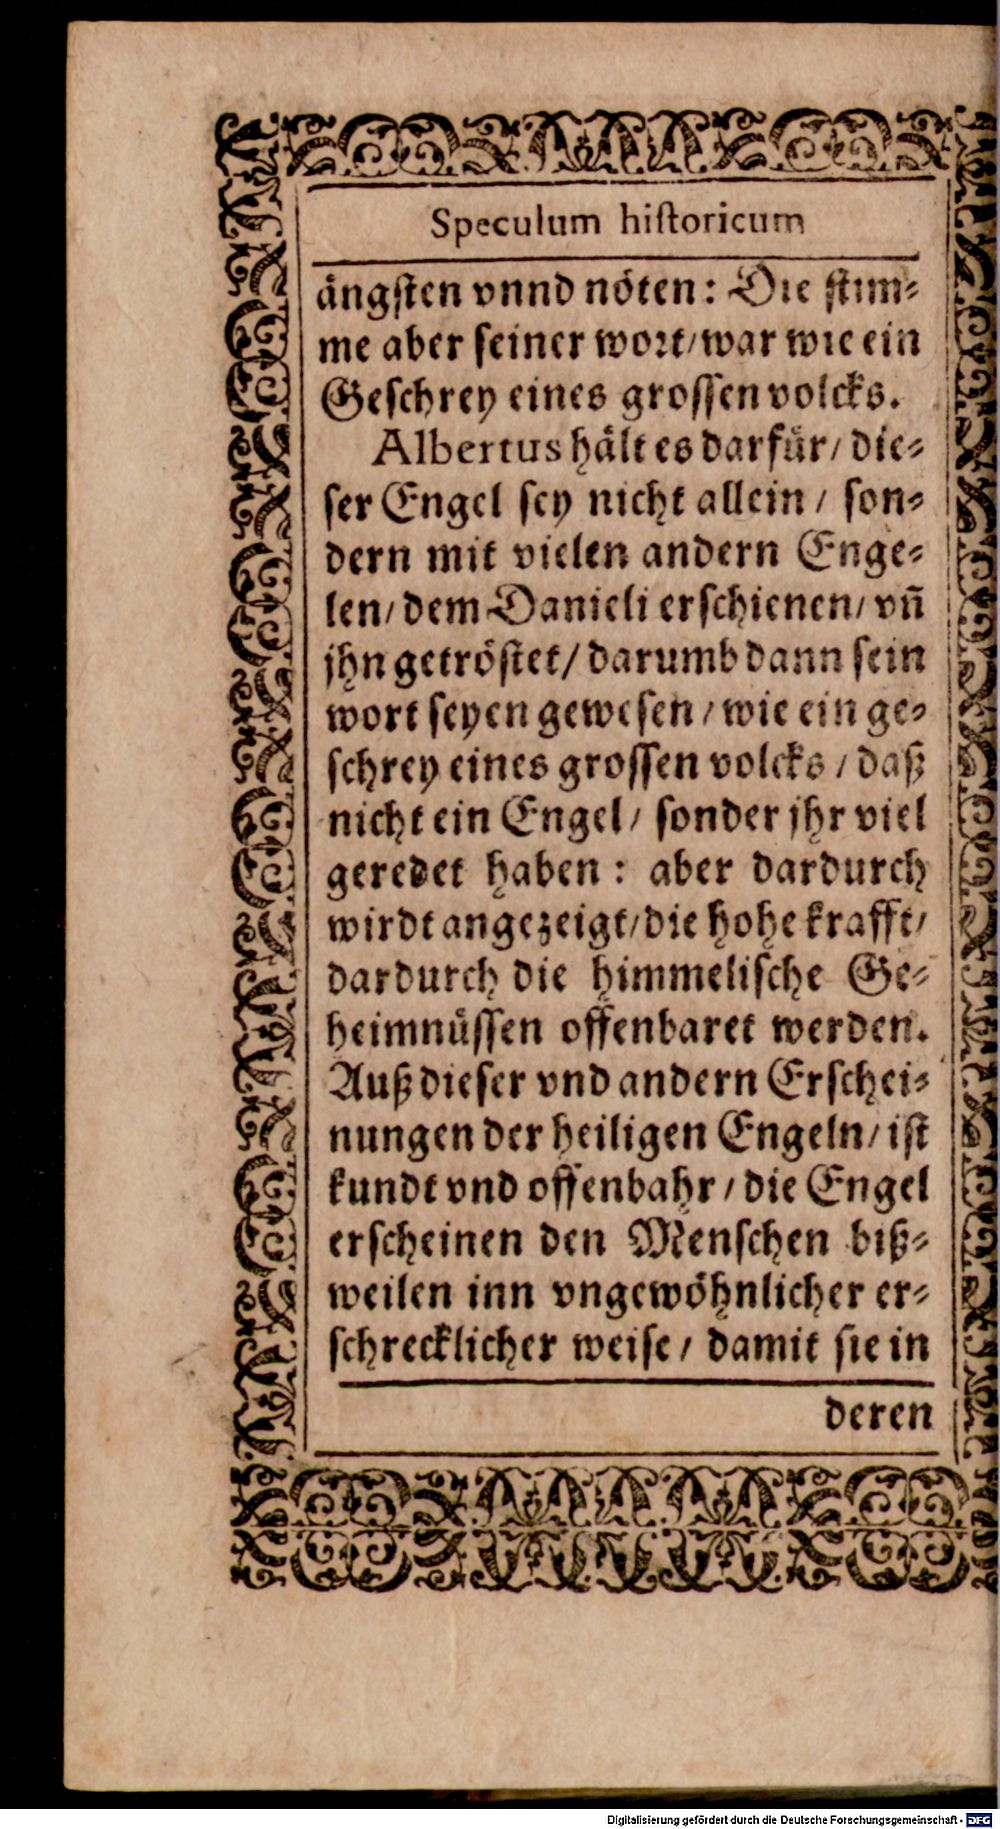 Speculum historicum
ängsten vnnd nöten: Die stim-
me aber seiner wort/war wie ein
Geschrey eines grossen volcks.
Albertus hält es darfür/ die-
ser Engel sey nicht allein / son-
dern mit vielen andern Enge-
len/ dem Danieli erschienen/ vñ
jhn getröstet/ darumb dann sein
wort seyen gewesen / wie ein ge-
schrey eines grossen volcks / daß
nicht ein Engel/ sonder jhr viel
geredet haben : aber dardurch
wirdt angezeigt/die hohe krafft/
dardurch die himmelische Ge-
heimnüssen offenbaret werden.
Auß dieser vnd andern Erschei-
nungen der heiligen Engeln/ ist
kundt vnd offenbahr / die Engel
erscheinen den Menschen biß-
weilen inn vngewöhnlicher er-
schrecklicher weise / damit sie in
deren
Digitalisierung gefördert durch die Deutsche Forschungsgemeinschaft - DFG